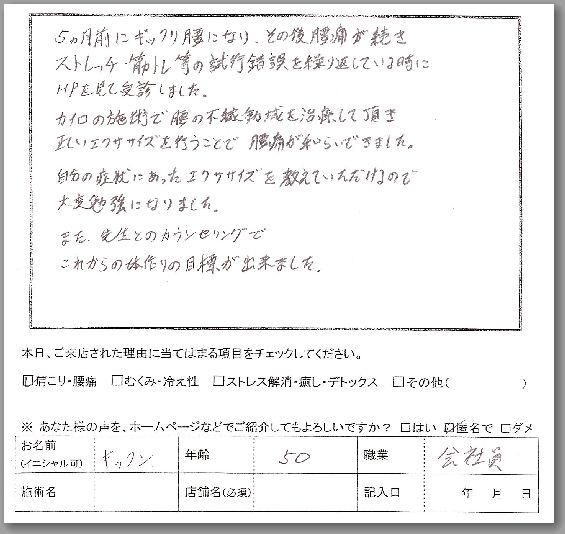 5ヵ月前にギックリ腰になり、その後腰痛が続き
ストレッチ・筋トレ等の試行錯誤を繰り返している時に
HPを見て受診しました。
カイロの施術で腰の不縁動域を治療して頂き
正しいエクササイズを行うことで 腰痛が和らいできました。
自分の症状にあったエクササイズを教えていただけるので
大変勉強になりました。
また、先生とのカウンセリングで
これからの体作りの目標が出来ました。
本日、ご来店された理由に当てはまる項目をチェックしてください。
☑肩こり・腰痛 □むくみ・冷え性 □ストレス解消・癒し・デトックス □その他( )
※ あなた様の声を、ホームページなどでご紹介してもよろしいですか? □はい ☑匿名で □ダメ
お名前 (イニシャル可) ギックン 年齢 50 職業 会社員
施術名 店舗名(必須) 記入日 年 月 日